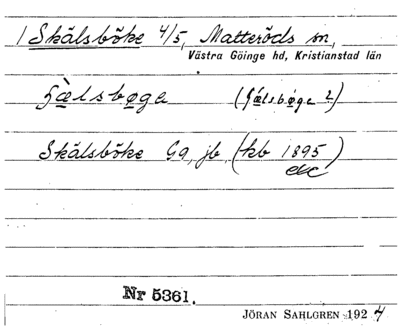 1 Skälsböke 4/5, Matteröds sn,
Västra Göinge hd, Kristianstad län
Skälsböke Gg, jb, (kb 1895)
etc
Nr 5361.
JÖRAN SAHLGREN 1924